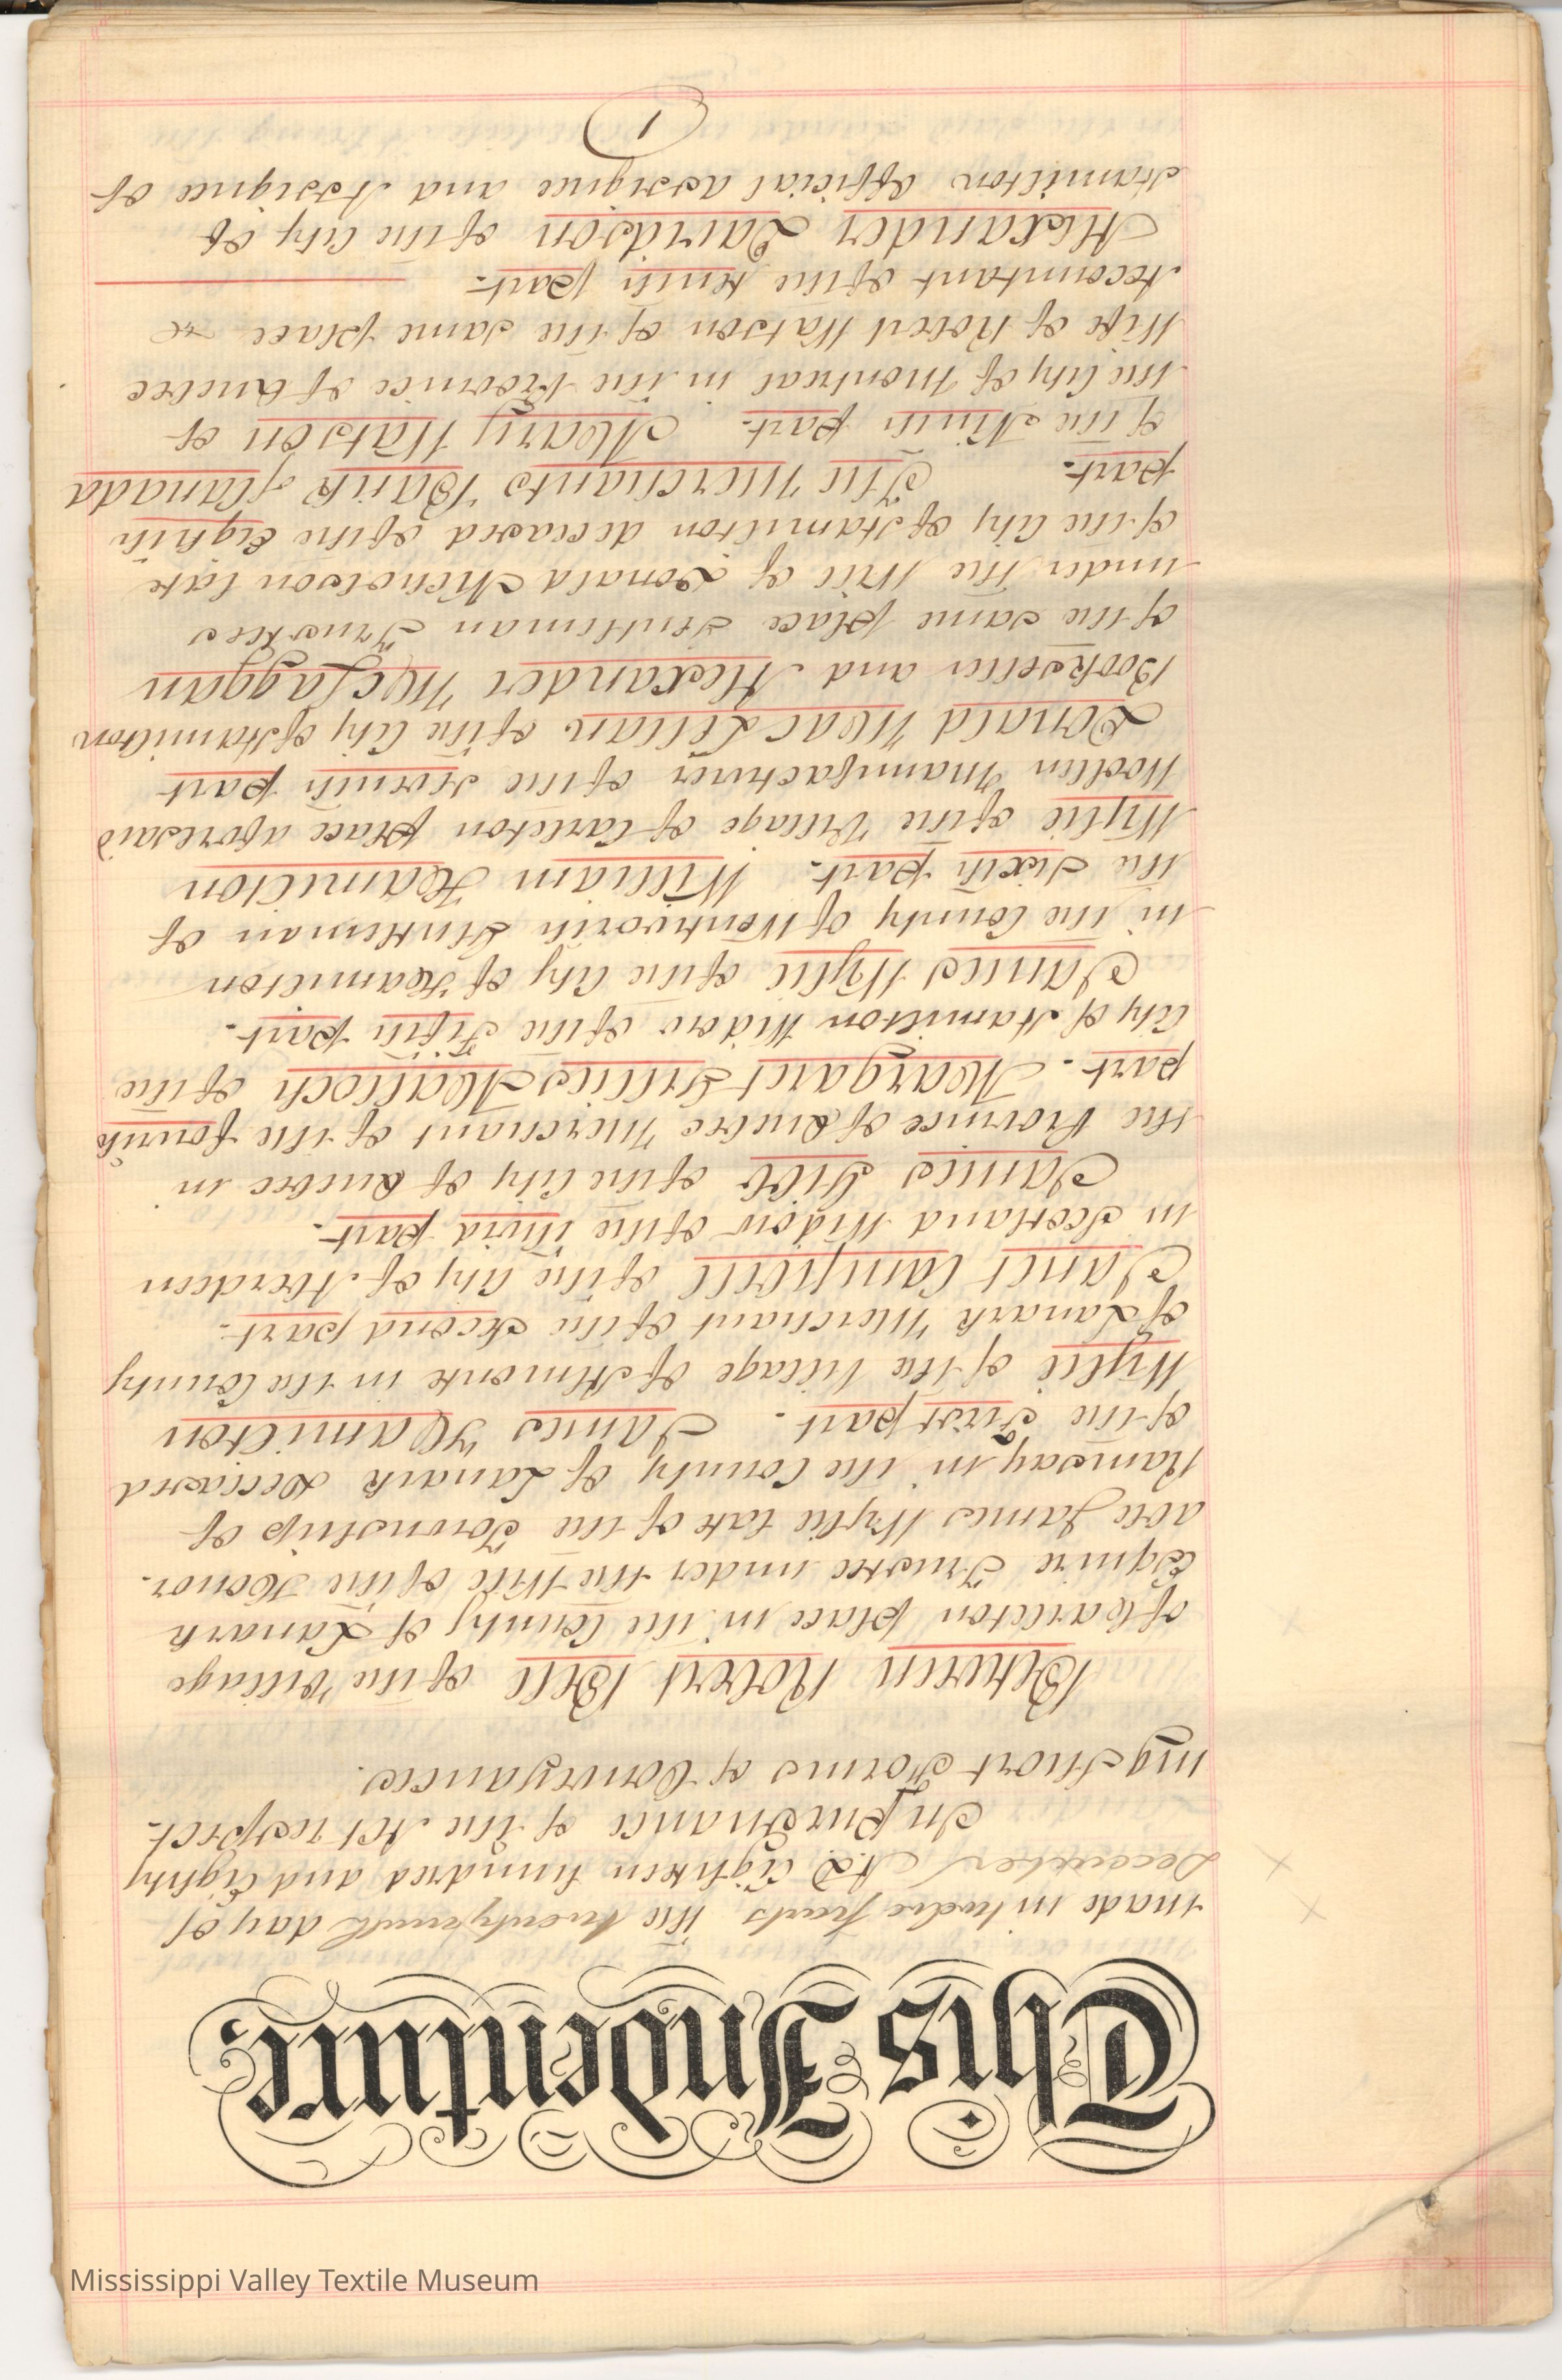 This Indenture
made in twelve parts the twentyninth day of
December A.D. Eighteen hundred and Eighty
In Pursuance of the Act respect-
ing Short Forms of Conveyances.
Between Robert Bell of the Village
of Carleton place in the County of Lanark
Esquire Trustee under the Will of the Honor-
able James Wylie late of the Township of
Ramsay in the County of Lanark Deceased
of the First part. James Hamilton
Wylie of the Village of Almonte in the County
of Lanark Merchant of the Second part.
Janet Campbell of the City of Aberdeen
in Scotland Widow of the third part.
James Gibb of the City of Quebec in
the Province of Quebec Merchant of the fourth
part. Margaret Gillies Malloch of the
City of Hamilton Widow of the Fifth part.
James Wylie of the City of Hamilton
in the County of Wentworth Gentleman of
the Sixth part. William Hamilton
Wylie of the Village of Carleton place aforesaid
Woollen Manufacturer of the Seventh part
Donald MacLellan of the City of Hamilton
Bookseller and Alexander McLaggan
of the same place Gentleman Trustees
under the Will of Donald Nicholson late
of the City of Hamilton deceased of the Eighth
part. The Merchants Bank of Canada
of the Ninth part. Mary Watson of
the City of Montreal in the Province of Quebec
Wife of Robert Watson of the same place
Accountant of the tenth part.
Alexander Davidson of the City of
Hamilton Official assignee and Assignee of
1
Mississippi Valley Textile Museum